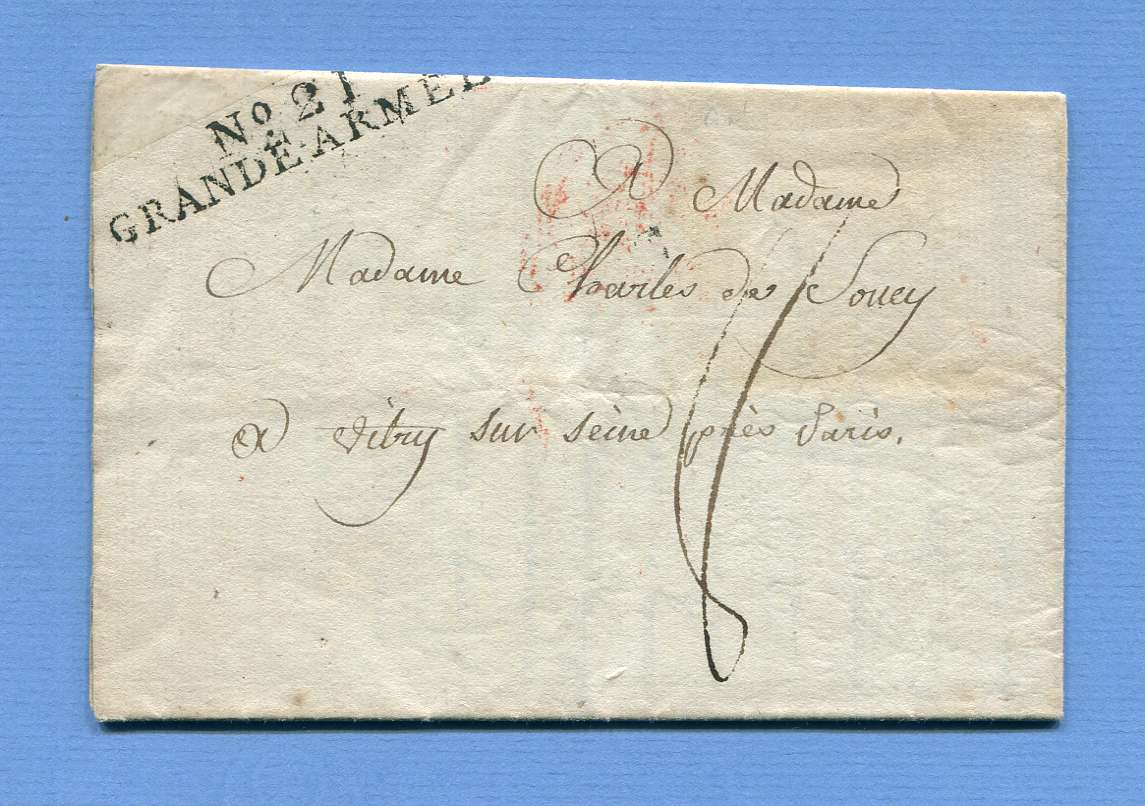 No 21
GRANDE-ARMÉE
A Madame
Madame Charles de Soucy
a vitry sur seine près Paris.
8